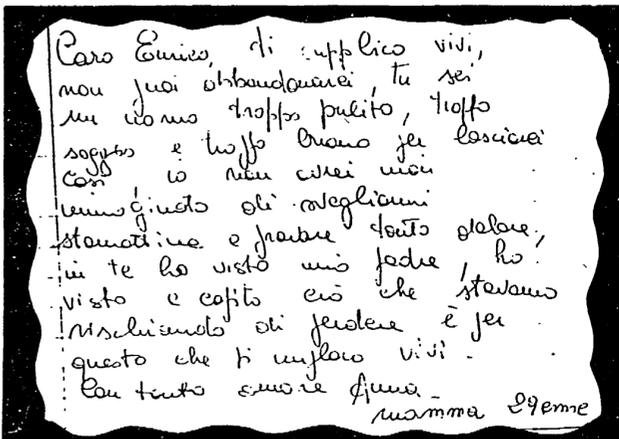 Caro Enrico, ti supplico vivi,
non puoi abbandonarci, tu sei
un uomo troppo pulito, troppo
saggio e troppo buono per lasciarci
così, io non avrei mai
immaginato di svegliarmi
stamattina e provare tanto dolore,
in te ho visto mio padre, ho
visto e capito ciò che stavamo
rischiando di perdere è per
questo che ti imploro vivi.
Con tanto amore Anna.
mamma 29enne